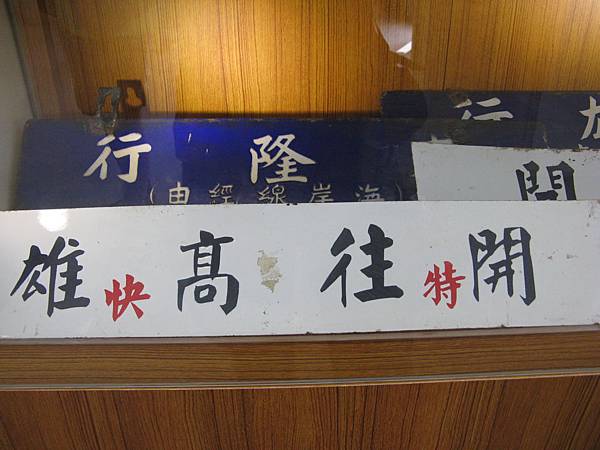 行
隆行
(海岸線經由)
開
開往髙雄
特快